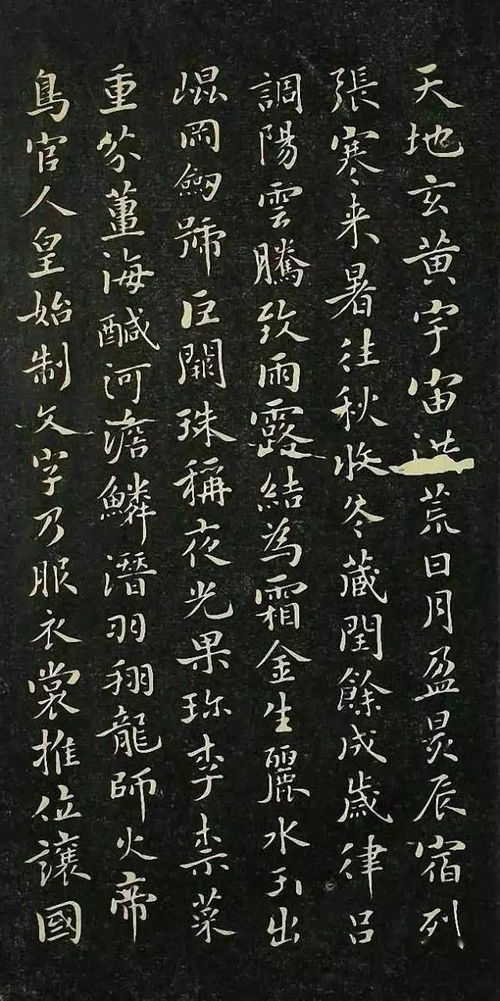 天地玄黃宇宙洪荒日月盈昃辰宿列
張寒来暑往秋收冬蔵閏餘成歲律呂
調陽雲騰致雨露結為霜金生麗水玉出
崐岡劎號巨闕珠稱夜光果珎李柰菜
重芥薑海醎河淡鱗潛羽翔龍師火帝
鳥官人皇始制文字乃服衣裳推位讓國